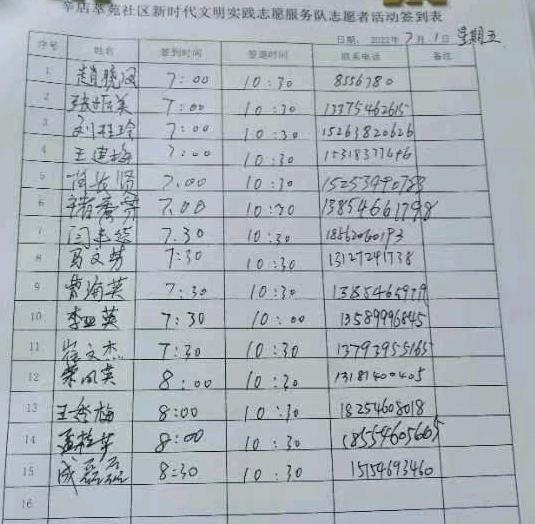 辛店萃苑社区新时代文明实践志愿服务队志愿者活动签到表
日期：2022年7月1日 星期五
序号 姓名 签到时间 签退时间 联系电话 备注
1 赵晓汉 7:00 10:30 8556780
2 7:00 10:30 13375462615
3 刘桂玲 7:00 10:30 15263820626
4 王建梅 7:00 10:30
5 7.00 10:30
6 7.00 10:30 13854661798
7 7.30 10:30
8 7:30 10:30 13127291738
9 7:30 10:30
10 李亚英 7:30 10:00 13589996845
11 崔文杰 7:30 10:30 13793955165
12 荣凤英 8:00 10:30
13 8:00 10:30 18254608018
14 孟桂华 8:00 10:30 18554605665
15 成磊磊 8:30 10:30 15154693460
16